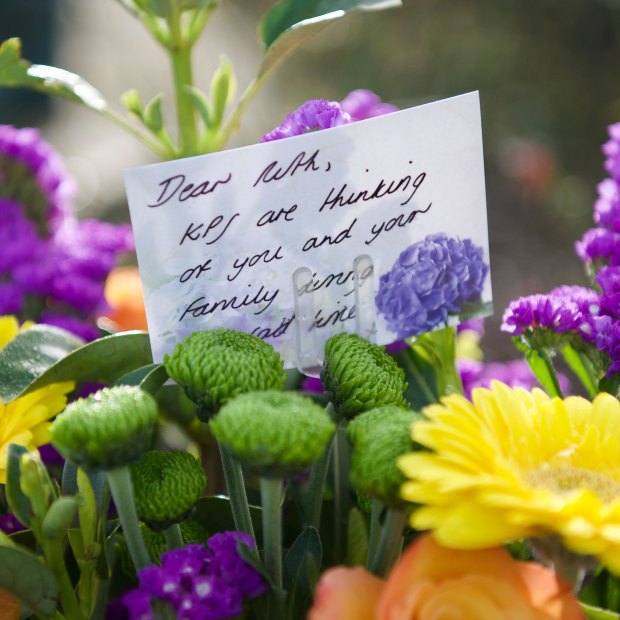 Dear Ruth,
KPS are thinking
of you and your
family during
time